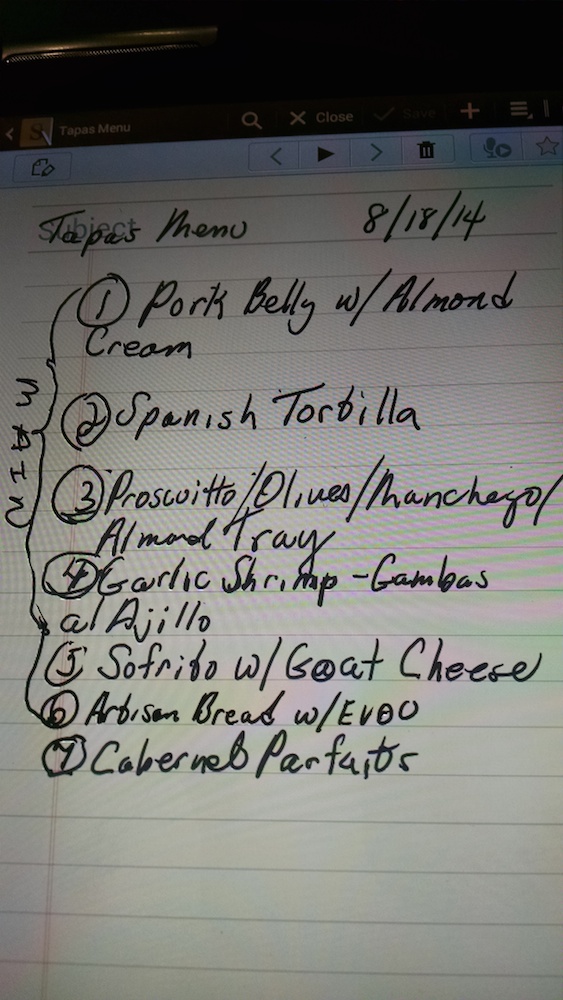 Tapas Menu Close Save
Subject
Tapas Menu 8/18/14
① Pork Belly w/Almond
Cream
② Spanish Tortilla
③ Proscuitto/Olives/Manchego/
Almond Tray
④ Garlic Shrimp - Gambas
al Ajillo
⑤ Sofrito w/Goat Cheese
⑥ Artisan Bread w/EVOO
⑦ Cabernet Parfaits